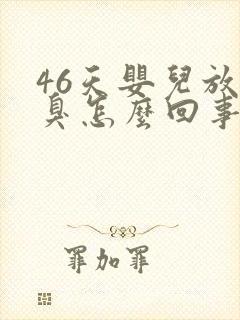 46天嬰兒放
臭怎麼回事
罪加罪